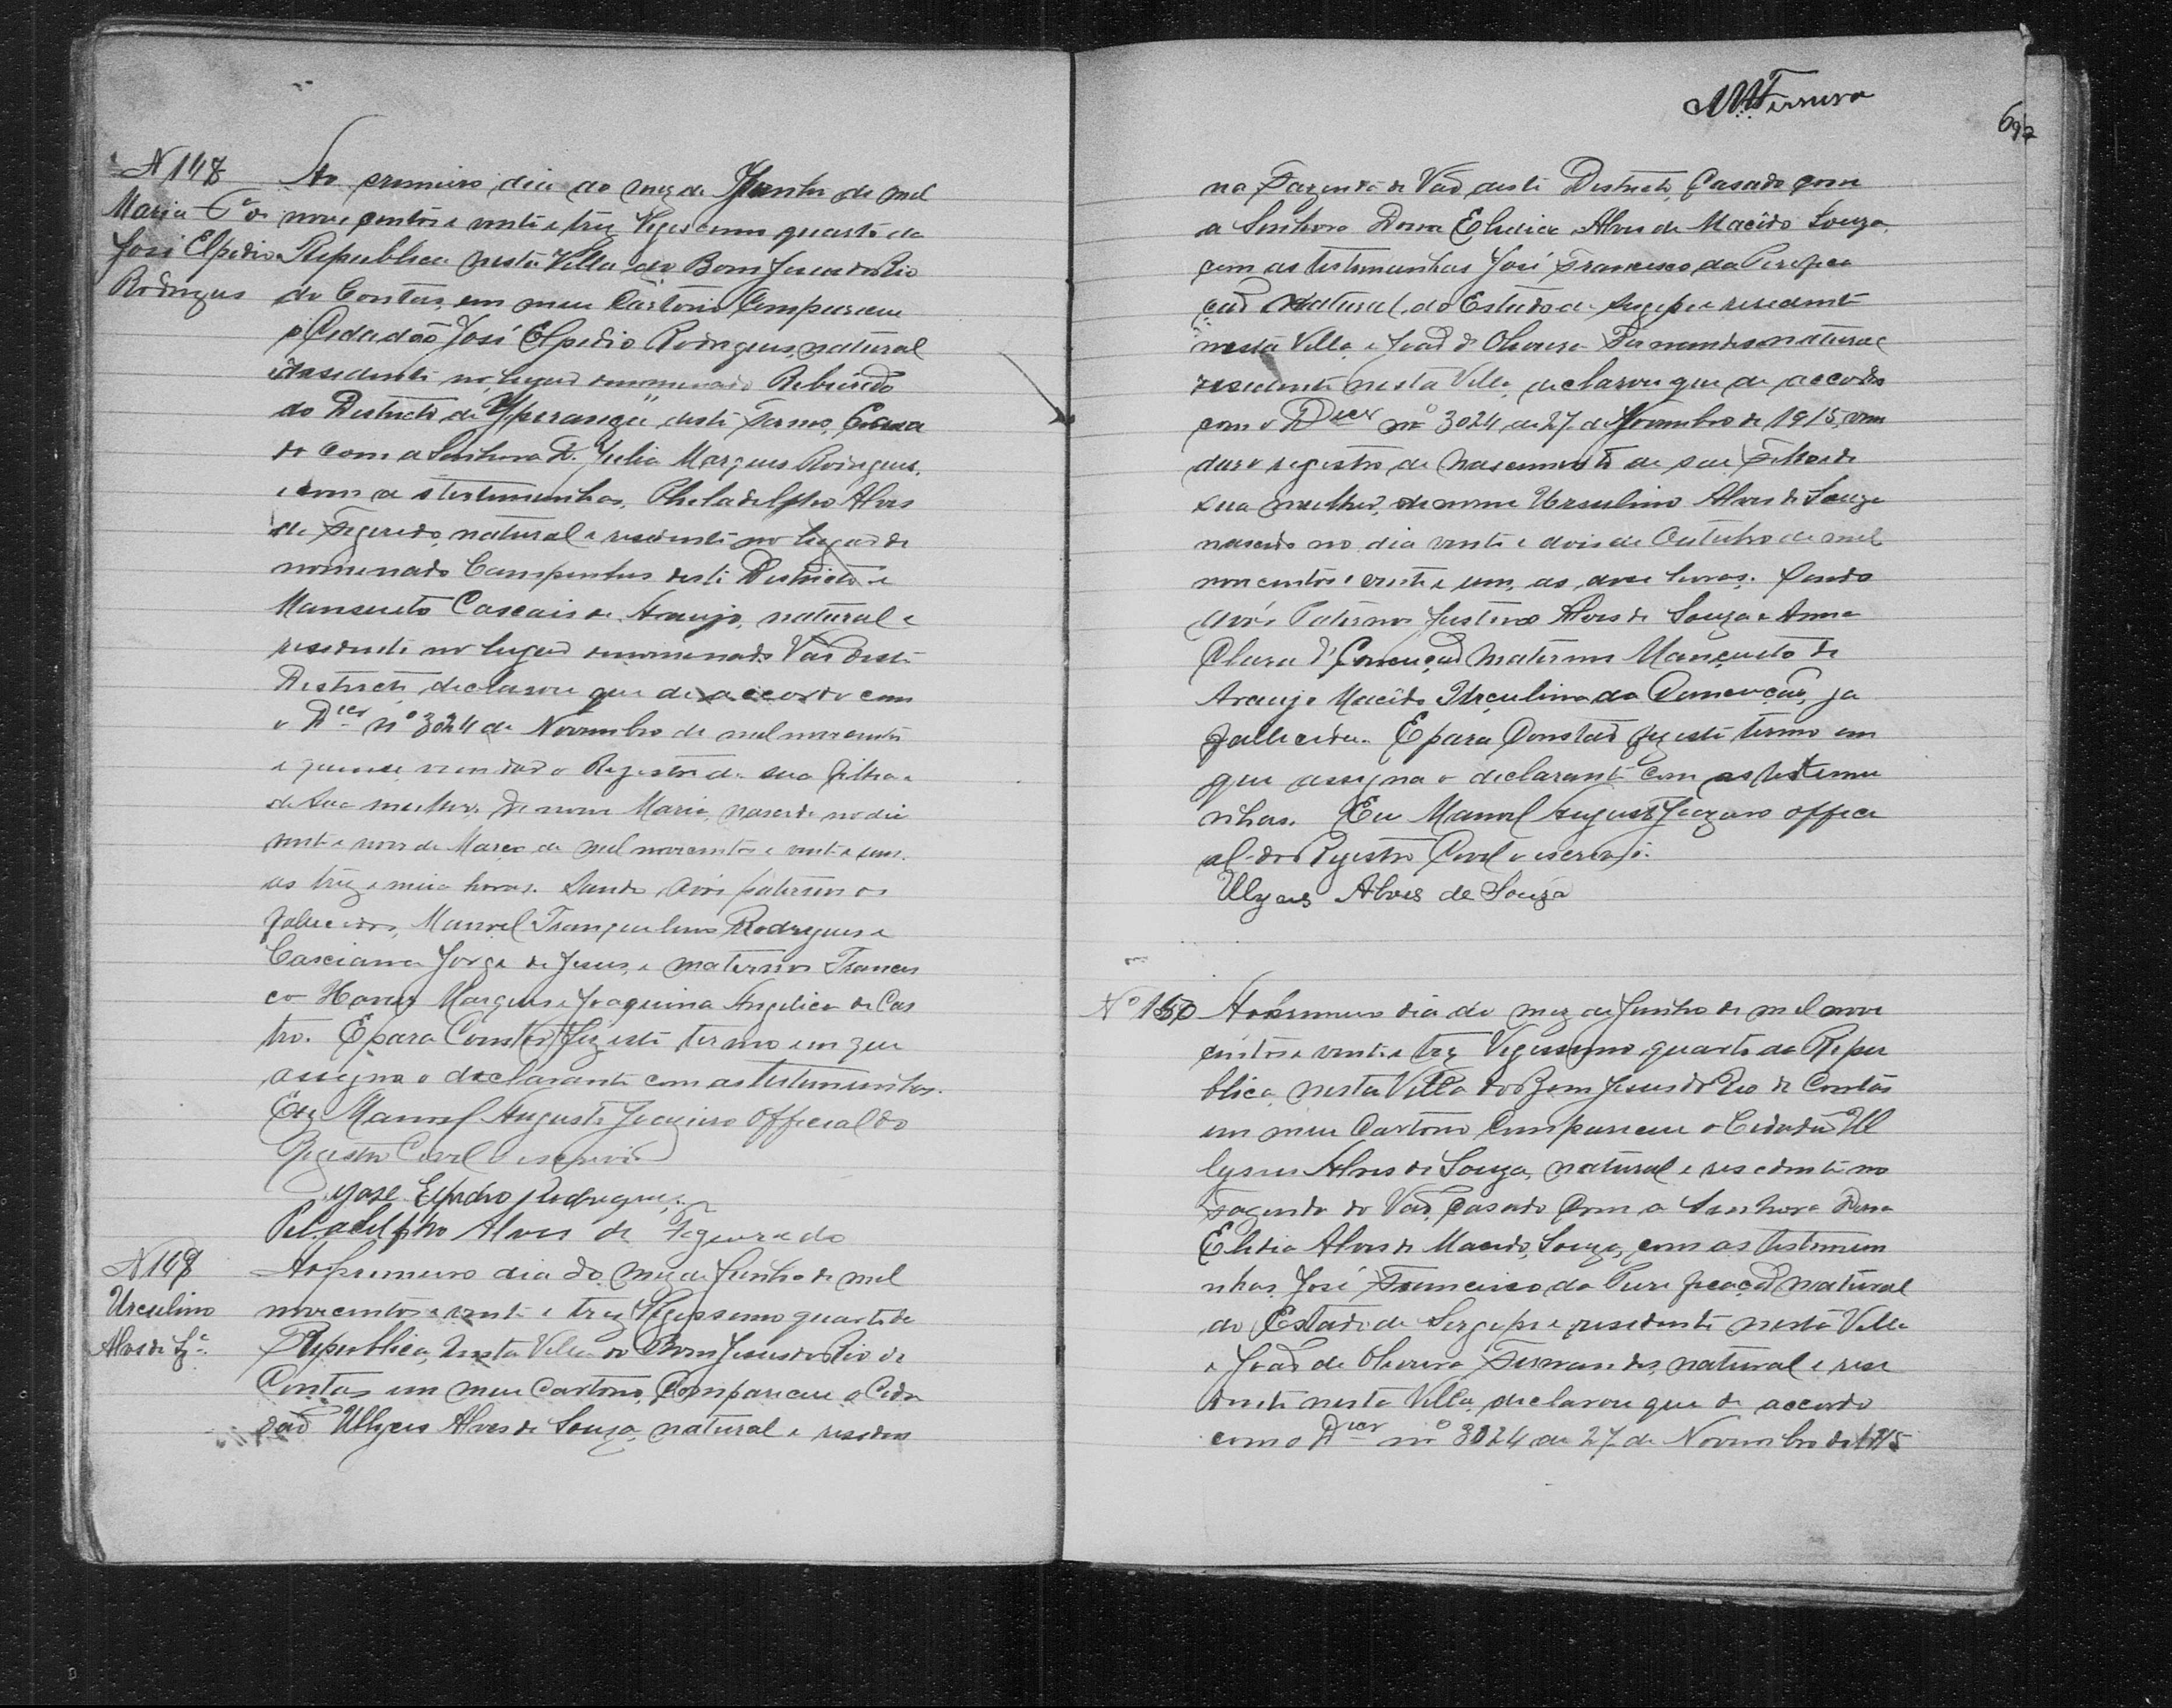 N 148
Maria Fª de
José Elpidio
Rodrigues
Ao primeiro dia do mez de Junho de mil
nove centos e vinte e trez Vigescimo quarto da
Republica nesta Villa do Bom Jesus do Rio
do Contas, em meu Cartorio Compareceu
o Cidadão José Elpidio Rodrigues, natural
e residente no lugar denominado
do Districto de Ypiranga, deste Termo, Casa
do com a Senhora D. Julia Marques Rodrigues,
e com a s testemunhas, Philadelpho Alves
de Figeredo, natural e residente no lugar de
nominado Campinhos deste Districto e
Mansueto Cascais de Araujo, natural e
residente no lugar denominado Vão deste
Districto, declarou que de accordo com
o Decr nº 3024 de Novembro de mil novecentos
e quinze vem dar o Registro de sua filha e
de sua mulher, de nome Maria, nascida no dia
vinte nove de Março de mil novecentos e vinte e um,
as trez e meia horas. Sendo avós paternos os
fallecidos, Manoel Tranquelino Rodrigues e
Casciana Jorge de Jesus, e maternos Francis
co Marques e Joaquina Angelica de Cas
tro. E para Constar fiz este termo em que
assigna o declarante com as testemunhas.
Eu Manoel Augusto Official do
Registro Civel o escrevi
José Elpidio Rodrigues
Peladelfho Alves de Figueredo
N 149
Urculino
Alves de Sza
Ao primeiro dia do mez de Junho de mil
novecentos e vinte e trez Vigessimo quarto da
Republica, nesta Villa do Bom Jesus do Rio de
Contas em meu Cartorio, Compareceu o Cida
dão Ulyces Alves de Souza, natural e residen
M. A. Ferreira
69
na Fazenda do Vão deste Districto, Casado com
a Senhora Dona Elidia Alves de Macêdo Souza,
com as testemunhas José Francisco da Purifica
ção natural do Estado de Sergipe e residente
nesta Villa e João de Oliveira Fernandes natural
residente nesta Villa, declarou que de accordo
com o Decr nº 3024 de 27 de Novembro de 1915, vem
dar o registro de nascimento de seu Filho e de
sua mulher, de nome Ursulino Alves de Souza
nascido no dia vinte e dois de Outubro de mil
novecentos e vinte e um, as doze horas. Sendo
avós Paternos Justino Alves de Souza e Anna
Clara d'Conceição Maternos Mançueto de
Araujo Macêdo, Urçulina da Conceição, ja
fallecida. E para Constar fiz este termo em
que assigna o declarante com as testemu
nhas. Eu Manoel Augusto offici
al do Registro Civel o escrevi.
Ulyces Alves de Souza
Nº 150
Ao primeiro dia do mez de Junho de mil nove
centos e vinte e trez Vigessimo quarto da Repu
blica, nesta Villa do Bom Jesus do Rio de Contas
em meu Cartorio Compareceu o Cidadão Ul
lysses Alves de Souza, natural e residente na
Fazenda do Vão, Casado Com a Senhora Dona
Elidia Alves de Macedo, Souza, com as testemun
nhas José Francisco da Purificação natural
do Estado de Sergipe e residente nesta Villa
e João de Oliveira Fernandes, natural e resi
dente nesta Villa, declarou que de accordo
com o Decr nº 3024 de 27 de Novembro de 1915